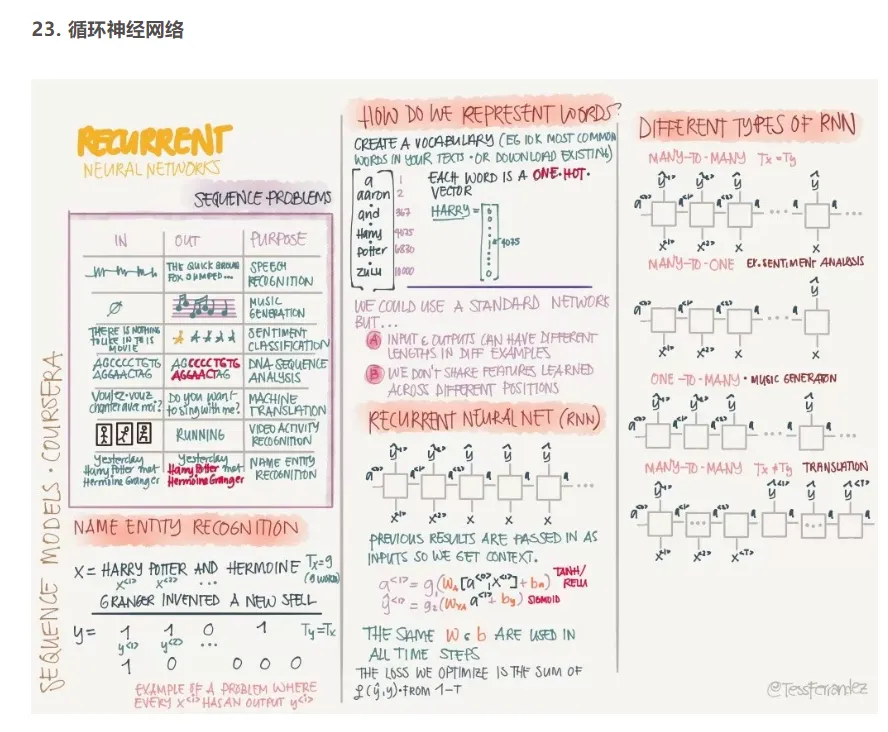 23. 循环神经网络
RECURRENT
NEURAL NETWORKS
SEQUENCE PROBLEMS
IN OUT PURPOSE
THE QUICK BROWN FOX JUMPED... SPEECH RECOGNITION
∅ MUSIC GENERATION
THERE IS NOTHING TO LIKE IN THIS MOVIE SENTIMENT CLASSIFICATION
AGCCCCTGTG AGGAACTAG AGCCCCTGTG AGGAACTAG DNA SEQUENCE ANALYSIS
Voulez-vouz chanter avec moi? Do you want to sing with me? MACHINE TRANSLATION
RUNNING VIDEO ACTIVITY RECOGNITION
Yesterday Harry Potter met Hermoine Granger Yesterday Harry Potter met Hermoine Granger NAME ENTITY RECOGNITION
SEQUENCE MODELS · COURSERA
NAME ENTITY RECOGNITION
X = HARRY POTTER AND HERMOINE Tx=9
x<1> x<2> ... (9 WORDS)
GRANGER INVENTED A NEW SPELL
y = 1 1 0 1 Ty=Tx
y<1> y<2> ...
1 0 0 0 0
EXAMPLE OF A PROBLEM WHERE
EVERY X<i> HAS AN OUTPUT y<i>
HOW DO WE REPRESENT WORDS?
CREATE A VOCABULARY (EG 10K MOST COMMON
WORDS IN YOUR TEXTS · OR DOWNLOAD EXISTING)
a 1
aaron 2
and 367
Harry 4075
Potter 6830
zulu 10000
EACH WORD IS A ONE·HOT·
VECTOR
HARRY =
0
0
1
0
4075
WE COULD USE A STANDARD NETWORK
BUT...
A INPUT & OUTPUTS CAN HAVE DIFFERENT
LENGTHS IN DIFF EXAMPLES
B WE DON'T SHARE FEATURES LEARNED
ACROSS DIFFERENT POSITIONS
RECURRENT NEURAL NET (RNN)
ŷ<1> ŷ<2> ŷ ŷ ŷ
a<0> a<1> a<2> a a a ...
x<1> x<2> x x x
PREVIOUS RESULTS ARE PASSED IN AS
INPUTS SO WE GET CONTEXT.
a<1> = g₁(Wa[a<0>;x<1>] + ba) TANH/
RELU
ŷ<1> = g₂(Wya a<1> + by) SIGMOID
THE SAME W & b ARE USED IN
ALL TIME STEPS
THE LOSS WE OPTIMIZE IS THE SUM OF
ℒ(ŷ,y)·FROM 1-T
DIFFERENT TYPES OF RNN
MANY-TO-MANY Tx = Ty
ŷ<1> ŷ<2> ŷ ŷ
a<0> a<1> a<2> a a a
x<1> x<2> x x
MANY-TO-ONE EX. SENTIMENT ANALYSIS
ŷ
a<0> a<1> a<2> a a
x<1> x<2> x x
ONE-TO-MANY · MUSIC GENERATION
ŷ<1> ŷ<2> ŷ ŷ
a<0> a<1> a<2> a a a
x<1>
MANY-TO-MANY Tx ≠ Ty TRANSLATION
ŷ<1> ŷ ŷ<T>
a<0> a<1> a<2> a a a
x<1> x<2> x<T>
@TessFerrandez